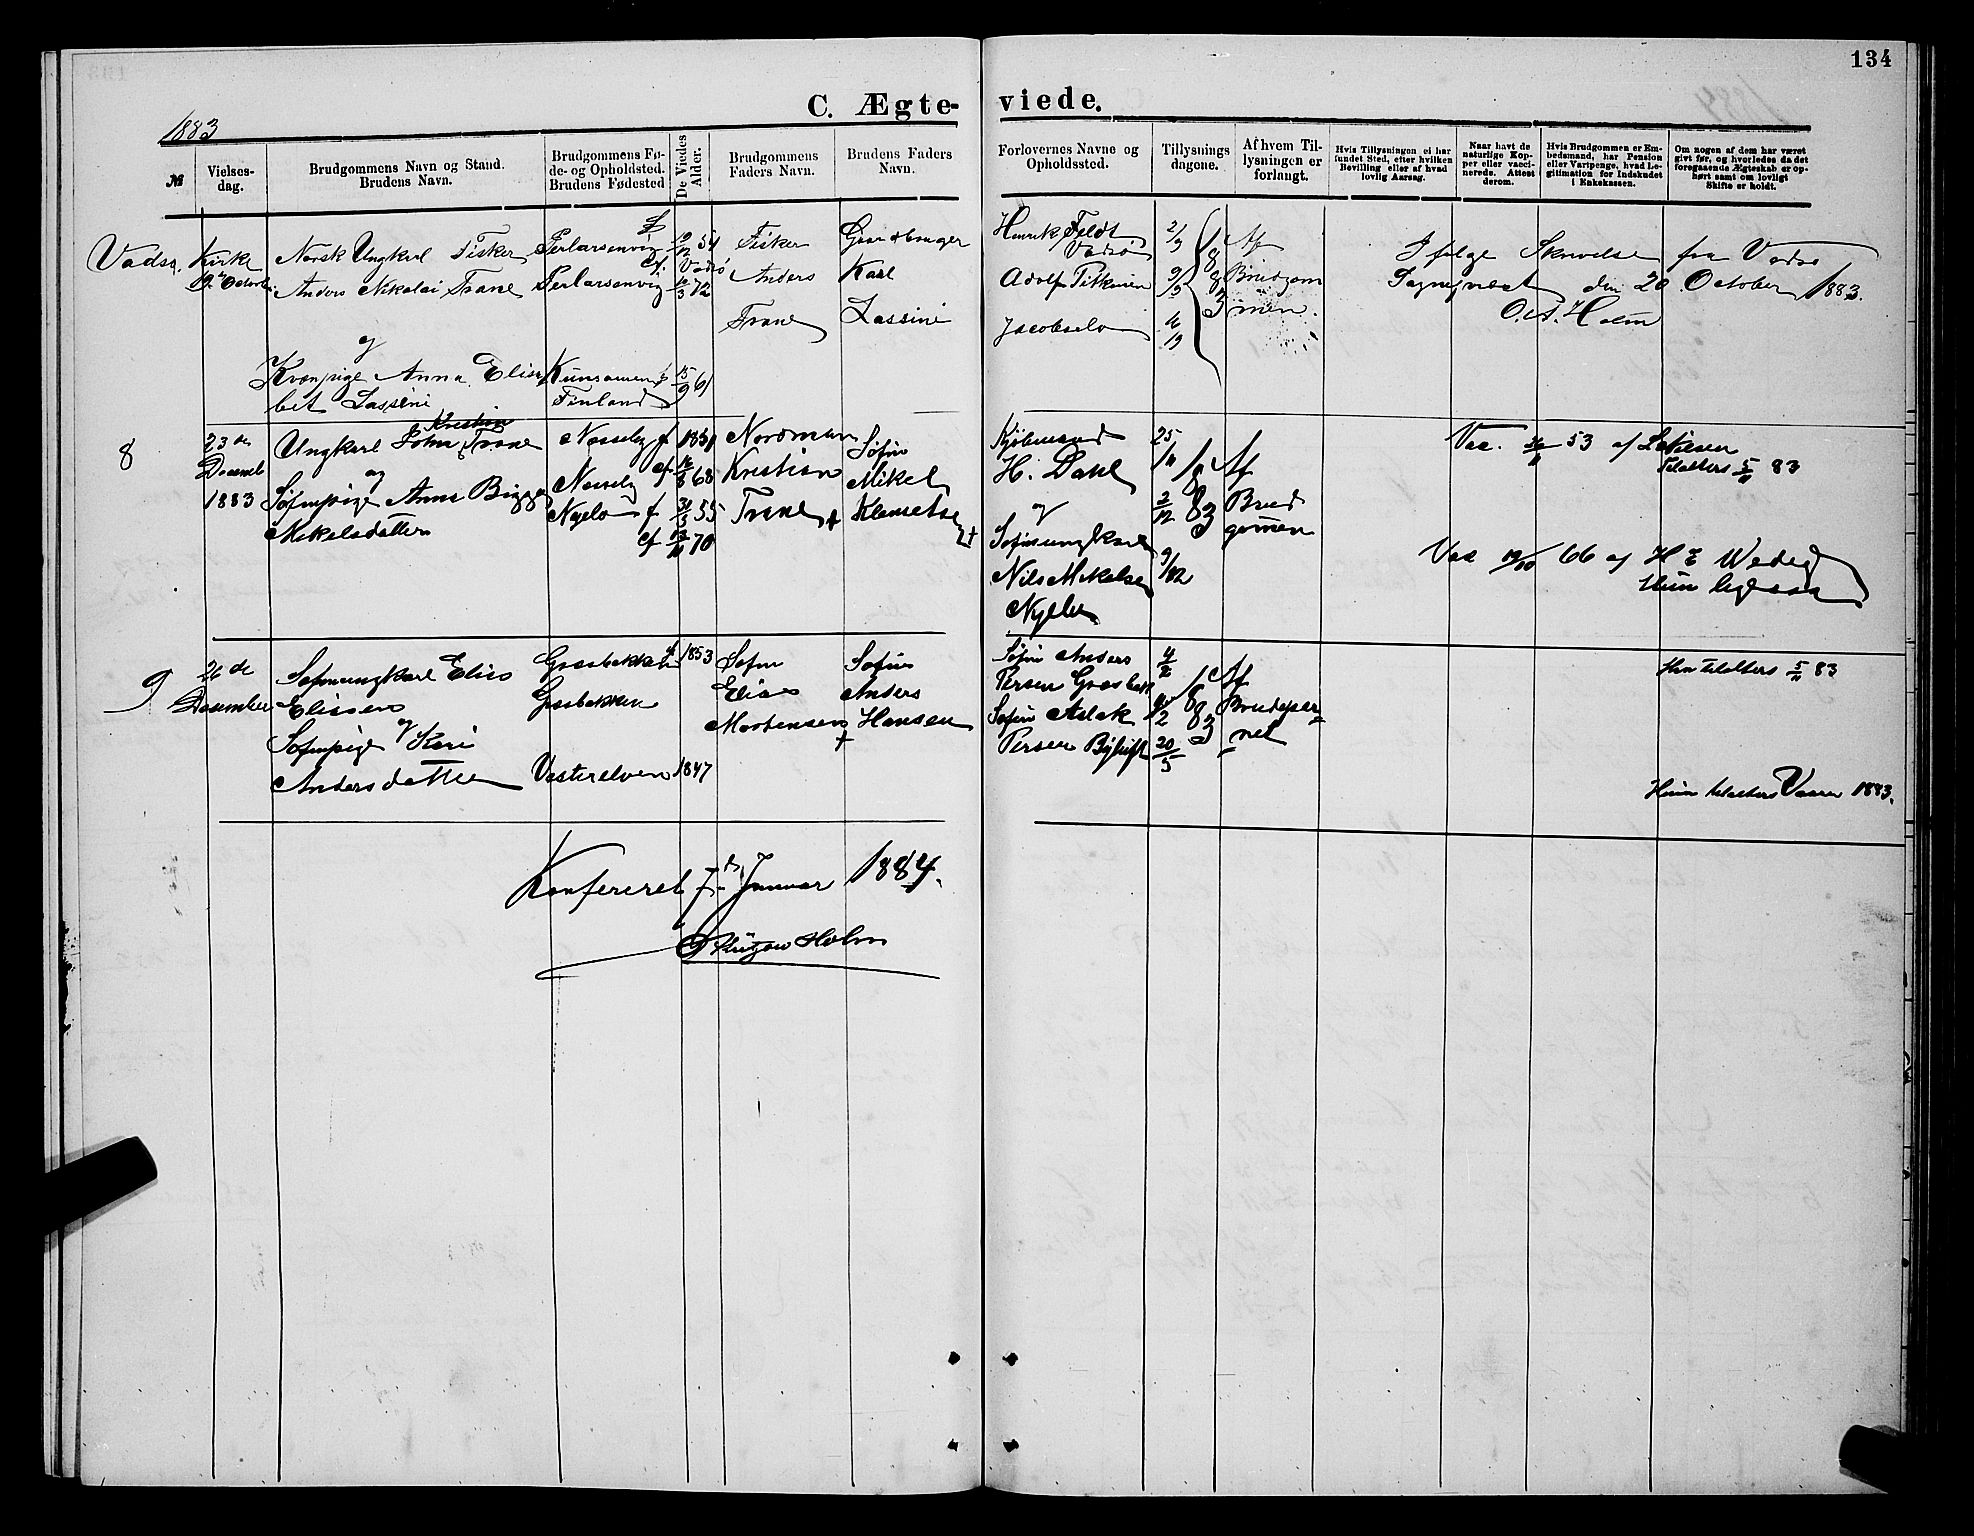 134
C. Ægte- viede.
1883
№
Vielses-
dag.
Brudgommens Navn og Stand.
Brudens Navn.
Brudgommens Fø-
de- og Opholdsted.
Brudens Fødested
De Viedes
Alder.
Brudgommens
Faders Navn.
Brudens Faders
Navn.
Forlovernes Navne og
Opholdssted.
Tillysnings
dagene.
Af hvem Til-
lysningen er
forlangt.
Hvis Tillysningen ei har
fundet Sted, efter hvilken
Bevilling eller af hvad
lovlig Aarsag.
Naar havt de
naturlige Kop-
per eller vacci-
nerede. Attest
derom.
Hvis Brudgommen er Em-
bedsmand, har Pension
eller Vartpenge, hvad Le-
gitimation for Indskudet
i Enkekassen.
Om nogen af dem har været
givt før, og hvorledes da det
foregaaende Ægteskab er op-
hørt samt om lovligt
Skifte er holdt.
Vadsø Kirke
Norsk Ungkarl Fisker
Anders Nikolai Trane
og
Kvænpige Anna Elisa
bet Lassini
Perlarsenvig
Perlarsenvig
Vadsø
Kunsamen
Finland
15/9 61
Fisker
Anders
Trane
Gaardbruger
Karl
Lassini
Henrik Feldt
Vadsø
Adolf Pitkänen
Jacobselv
2/9
9/9
1883
Af
Brudgom
men.
Ifølge Skrivelse fra Vadsø
Sognepræst den 20 October 1883.
O. A. Holm
8
23de
Decemb
1883
Ungkarl John Kristian Trane
og
Søfinpige Anna Bigga
Mikelsdatter
Nesseby f
Nesseby
Nyelv f
1851
68
55
70
Nordman
Kristian
Trane +
Søfin
Mikel
Klemetsen +
Kjøbmand
H. Dahl
og
Søfinungkarl
Nils Mikelsen
Nyelv
25/11
2/12
9/12
83
Af
Brud
gommen
Vac. 53 af L. Nilsen
Tilalters 5/11 83
Vac 19/10 66 af H E Wedeg
Hun ligesaa
9
26de
December
Søfinungkarl Elias
Eliasen
og
Søfinpige Kari
Andersdatter
Græsbakken
Græsbakken
Vesterelven
1853
1847
Søfin
Elias
Mortensen
+
Søfin
Anders
Hansen
Søfin Anders
Persen Græsbak
Søfin Aslak
Persen
4/2
20/5
83
Af
Brudepar-
ret
Han tilalters 5/11 83
Hun tilalters Vaaren 1883.
Konfereret 7de Januar 1884.
Holm